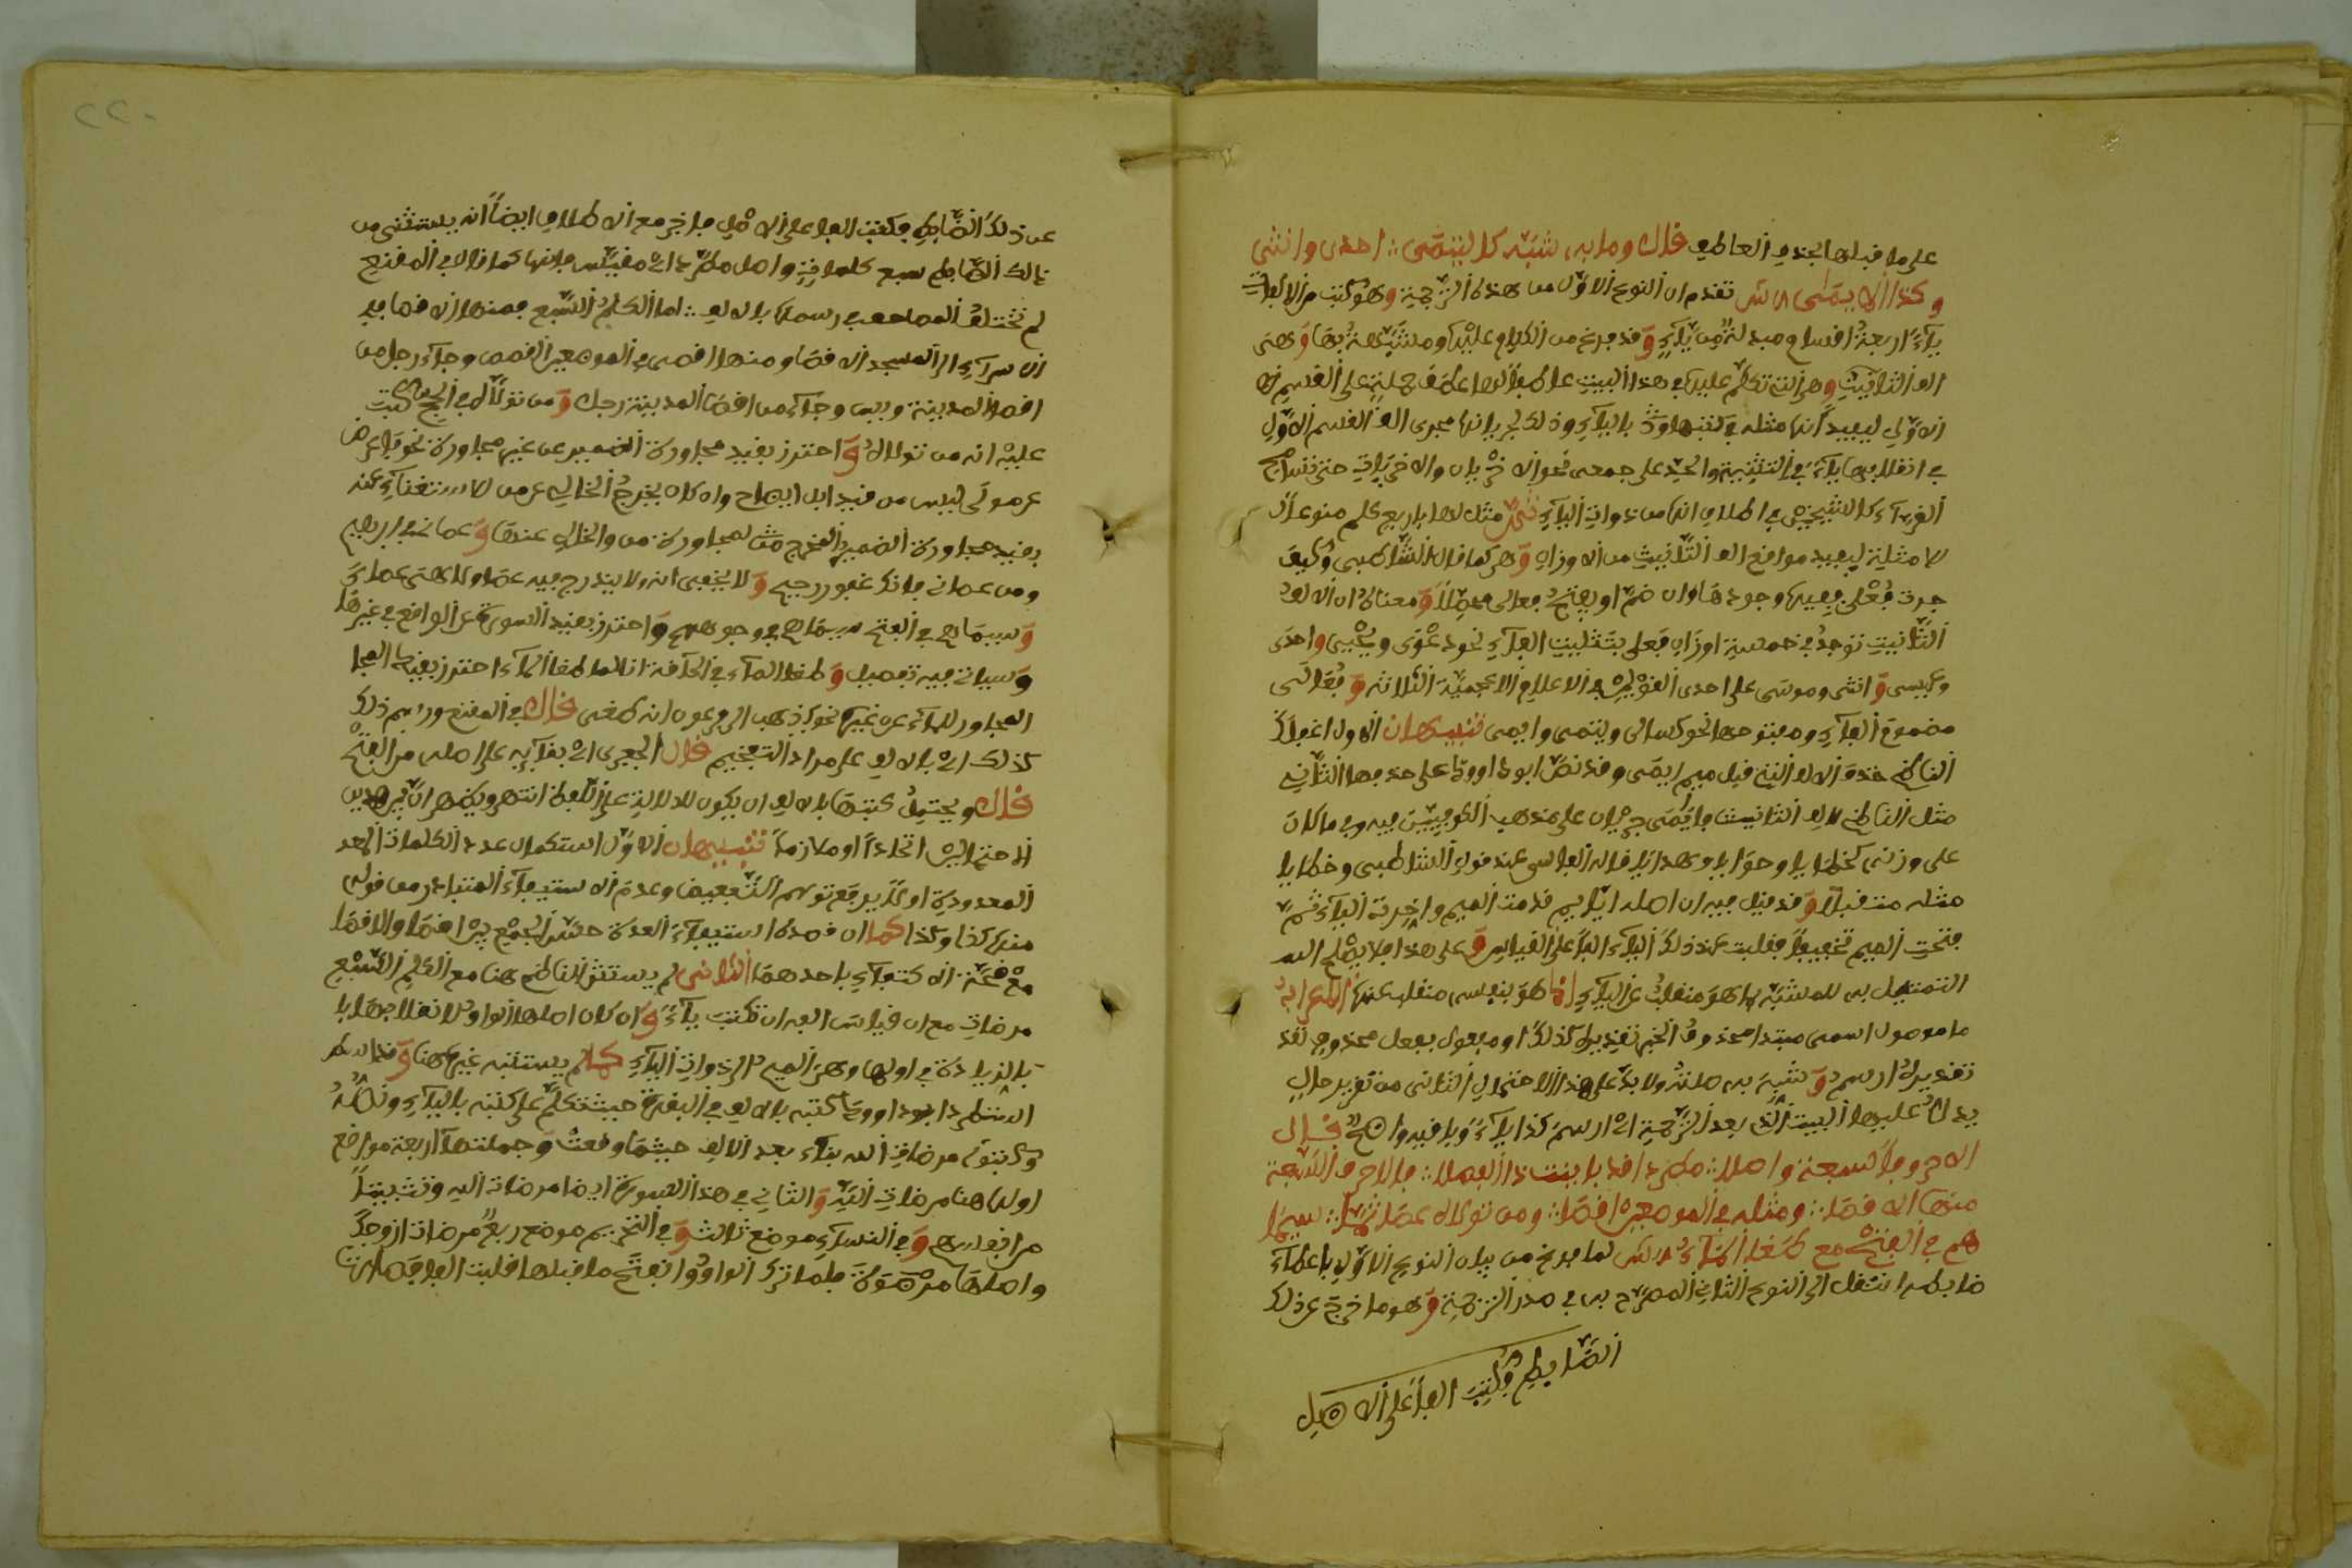 على ما قبلها بحذف العاطف قال وما به شبه كاليتمى احدى وانثى
وكذا الايمى ش تقدم ان النوع الاول من هذه الترجمة وهو كتب من الالفات
ياء اربعة اقسام مبدلة من ياء وقد فرغ من الكلام عليها ومشبهة بها وهي
الف التانيث وهي التي تكلم عليها في هذا البيت عاطفا لها عطف جملة على القسم
الاول ليفيد انها مثله في كتبها بالياء وذلك لجريانها مجرى الف القسم الاول
في انقلابها ياء في التثنية والجمع على جمعى نحو الاخريان والاخريات حتى
القراء كالشيخين في اطلاق انها من ذوات الياء ثم مثل لها باربع كلم منوعا ال
لامثلة ليفيد مواضع الف التانيث من الاوزان وهي كما قال الشاطبي وكيف
جرت فعلى ففيها وجودها وان ضم او يفتح فعالى فحصلا ومعناه ان الف
التانيث توجد في خمسة اوزان فعلى بتثليث الفاء نحو دعوى ويحيى واحدى
وعيسى وانثى وموسى على احدى القولين في الاعلام الاعجمية الثلاثة وفعالى
مضموم الفاء ومفتوحها نحو كسالى ويتمى وايمى تنبيهان الاول اغفل
الناظم حذف الالف التي قبل ميم ايمى وقد نص ابو داوود على حذفها الثاني
مثل الناظم لالف التانيث بايمى جريان على مذهب الكوفيين فيه وفي ما كان
على وزنه كخطايا وحوايا وهدايا قاله الفاسي عند قول الشاطبي وخطايا
مثله متقبلا وقد قيل فيه ان اصله ايايم قدمت الميم واخرت الياء ثم
فتحت الميم تخفيفا فقلبت عند ذلك الياء الفا على القياس وعلى هذا فلا يصلح
التمثيل به للمشبه بما هو منقلب عن الياء اذ هو بنفسه منقلب عنها الاعراب
ما موصول اسمي مبتدا محذوف الخبر تقديره كذلك او مفعول بفعل محذوف
تقديره ارسم وشبه به صلته ولا بد على هذا الاحتمال الثاني من تقدير حال
يدل عليها البيت الذي بعد الترجمة اي ارسم كذا ياء وباقيه واضح قال
الاحروفا سبعة واصلا مطردا قد باينت ذا الفصلا فالاحرف السبعة
منها الاقصا ومثله في الموضعين اقصا ومن تولاه عصاني ثما سيما
هم في الفتح مع طغا الماء ش لما فرغ من بيان النوع الاول باعطاء
ضابطه انتقل الى النوع الثاني المصرح به في صدر الترجمة وهو ما خرج عن ذلك
الضابط فكتب الفا على الاصل
عن ذلك الضابط فكتب الفا على الاصل فاخرج مع الاطلاق ايضا انه يستثنى من
ذالك الضابط سبع كلمات واصل مطرد اي مقيس فانها كما قال في المقنع
لم تختلف المصاحف في رسمها بالالف اما الكلم السبع فمنها الاقصا في
الاسراء الى المسجد الاقصا ومنها اقصى في الموضعين القصص وجاء رجل من
اقصا المدينة ويس وجاء من اقصا المدينة رجل ومن تولاه في الحج كتب
عليه انه من تولاه واحترز بقيد مجاورة الضمير عن غير مجاورة نحو فاعرض
عن من تولى ليس من قيد ابل ايضاح وان كان يخرج الخالي عن من للاستغناء عنه
بقيد مجاورة الضمير المخرج مثالا لمجاورة من والخالي عنها وعصاني في ابرهيم
ومن عصاني فانك غفور رحيم ولا يخفى انه لا يندرج فيه عصا ولا هي عصاي
وسيماهم في الفتح سيماهم في وجوههم واحترز بقيد السورة عن الواقع في غيرها
وسياتي فيه تفصيل وطغا الماء في الحاقة انا لما طغا الماء احترز بقيد
المجاور للماء عن غيره نحو اذهب الى فرعون انه طغى قال في المقنع ورسم ذلك
كذلك اي بالالف على مراد التفخيم قال الجعبري اي بقائه على اصله من الفتح
قال ويحتمل كتبها بالالف ان يكون للدلالة على اللفظ انتهى ويظهر ان بين هذين
الاحتمالين اتحادا او ملازما تنبيهان الاول استكمال عدد الكلمات
المعدودة اولا يرفع توهم التبعيض وعدم الاستيفاء المتبادر من قوله
منها كذا وكذا كما ان قصده استيفاء العدة حمله للجمع بين اقصا والاقصا
مع صحة الاكتفاء باحدهما الثاني لم يستثن الناظم هنا مع الكلم السبع
مرضات مع ان قياس الفه ان تكتب ياء وان كان اصلها الواو لانقلابها يا
بالزيادة في اولها وهي الميم الى ذوات الياء كما لم يستثنه غيره هنا وقد
ابو داوود كتبه بالالف في البقرة حيث تكلم على كتبه بالياء ونصه
وكتبوا مرضات الله بتاء بعد الالف حيثما وقعت وجملتها اربعة مواضع
اولها هنا مرضات الله والثاني في هذا السورة ايضا مرضات الله وتثبيتا
من انفسهم وفي النساء موضع ثالث وفي التحريم موضع رابع مرضات ازواجك
واصلها مرضوة فلما تحرك الواو وانفتح ما قبلها قلبت الفا